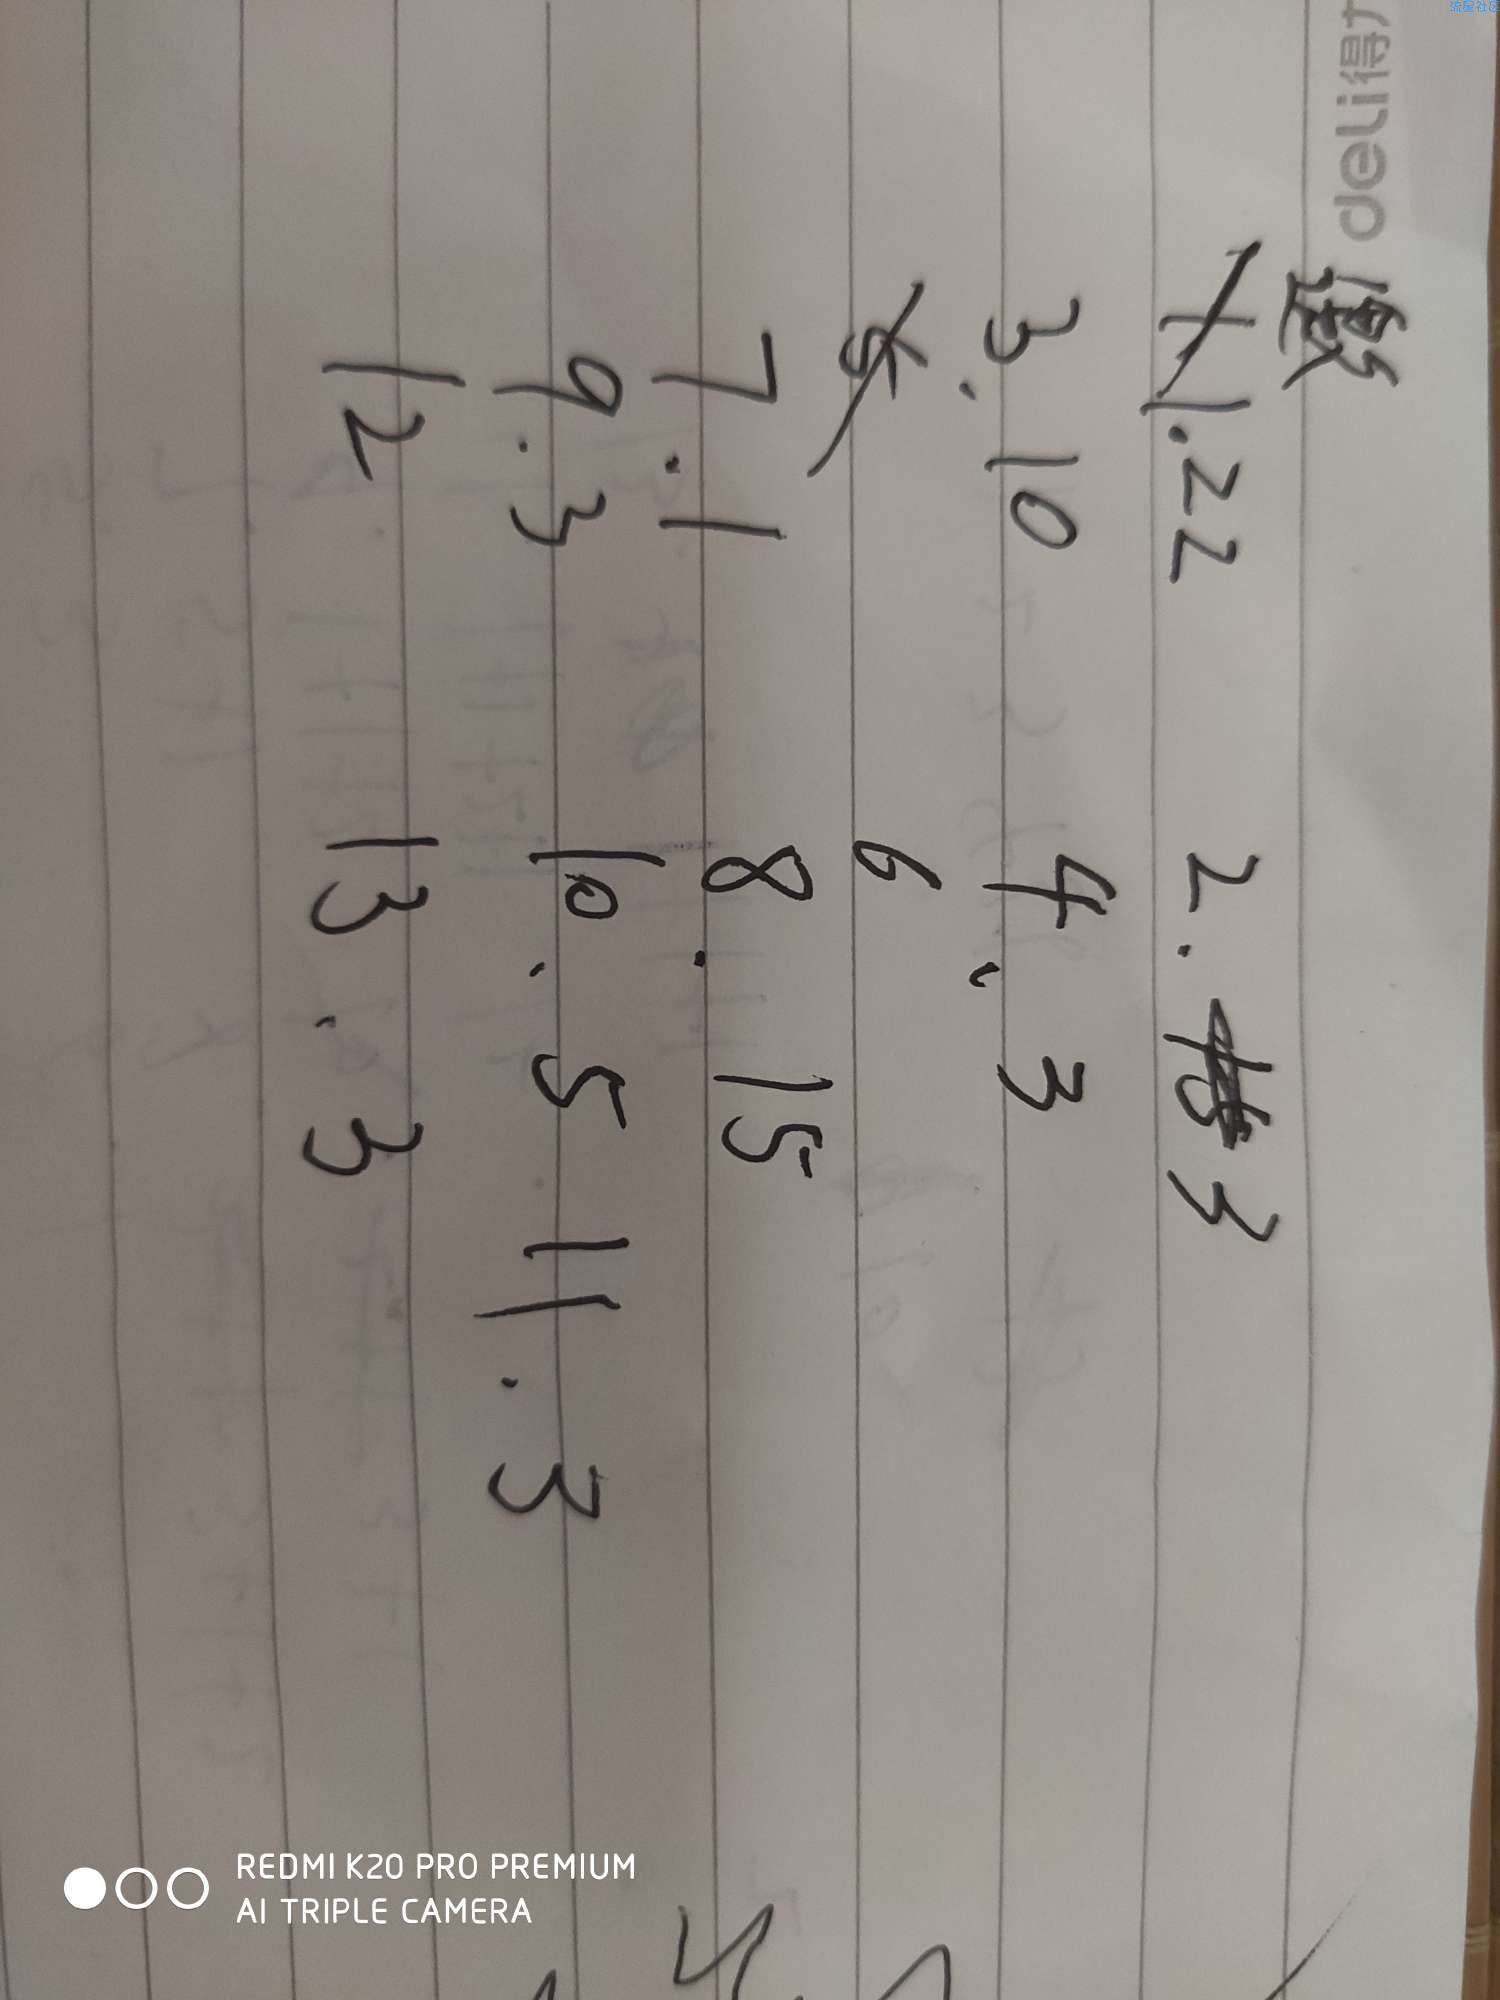 流星社区
deli得力
数
1.22 2. 3
3. 10 4. 3
6
7. 1 8. 15
9. 3 10. 5 11. 3
12 13. 3
REDMI K20 PRO PREMIUM
AI TRIPLE CAMERA